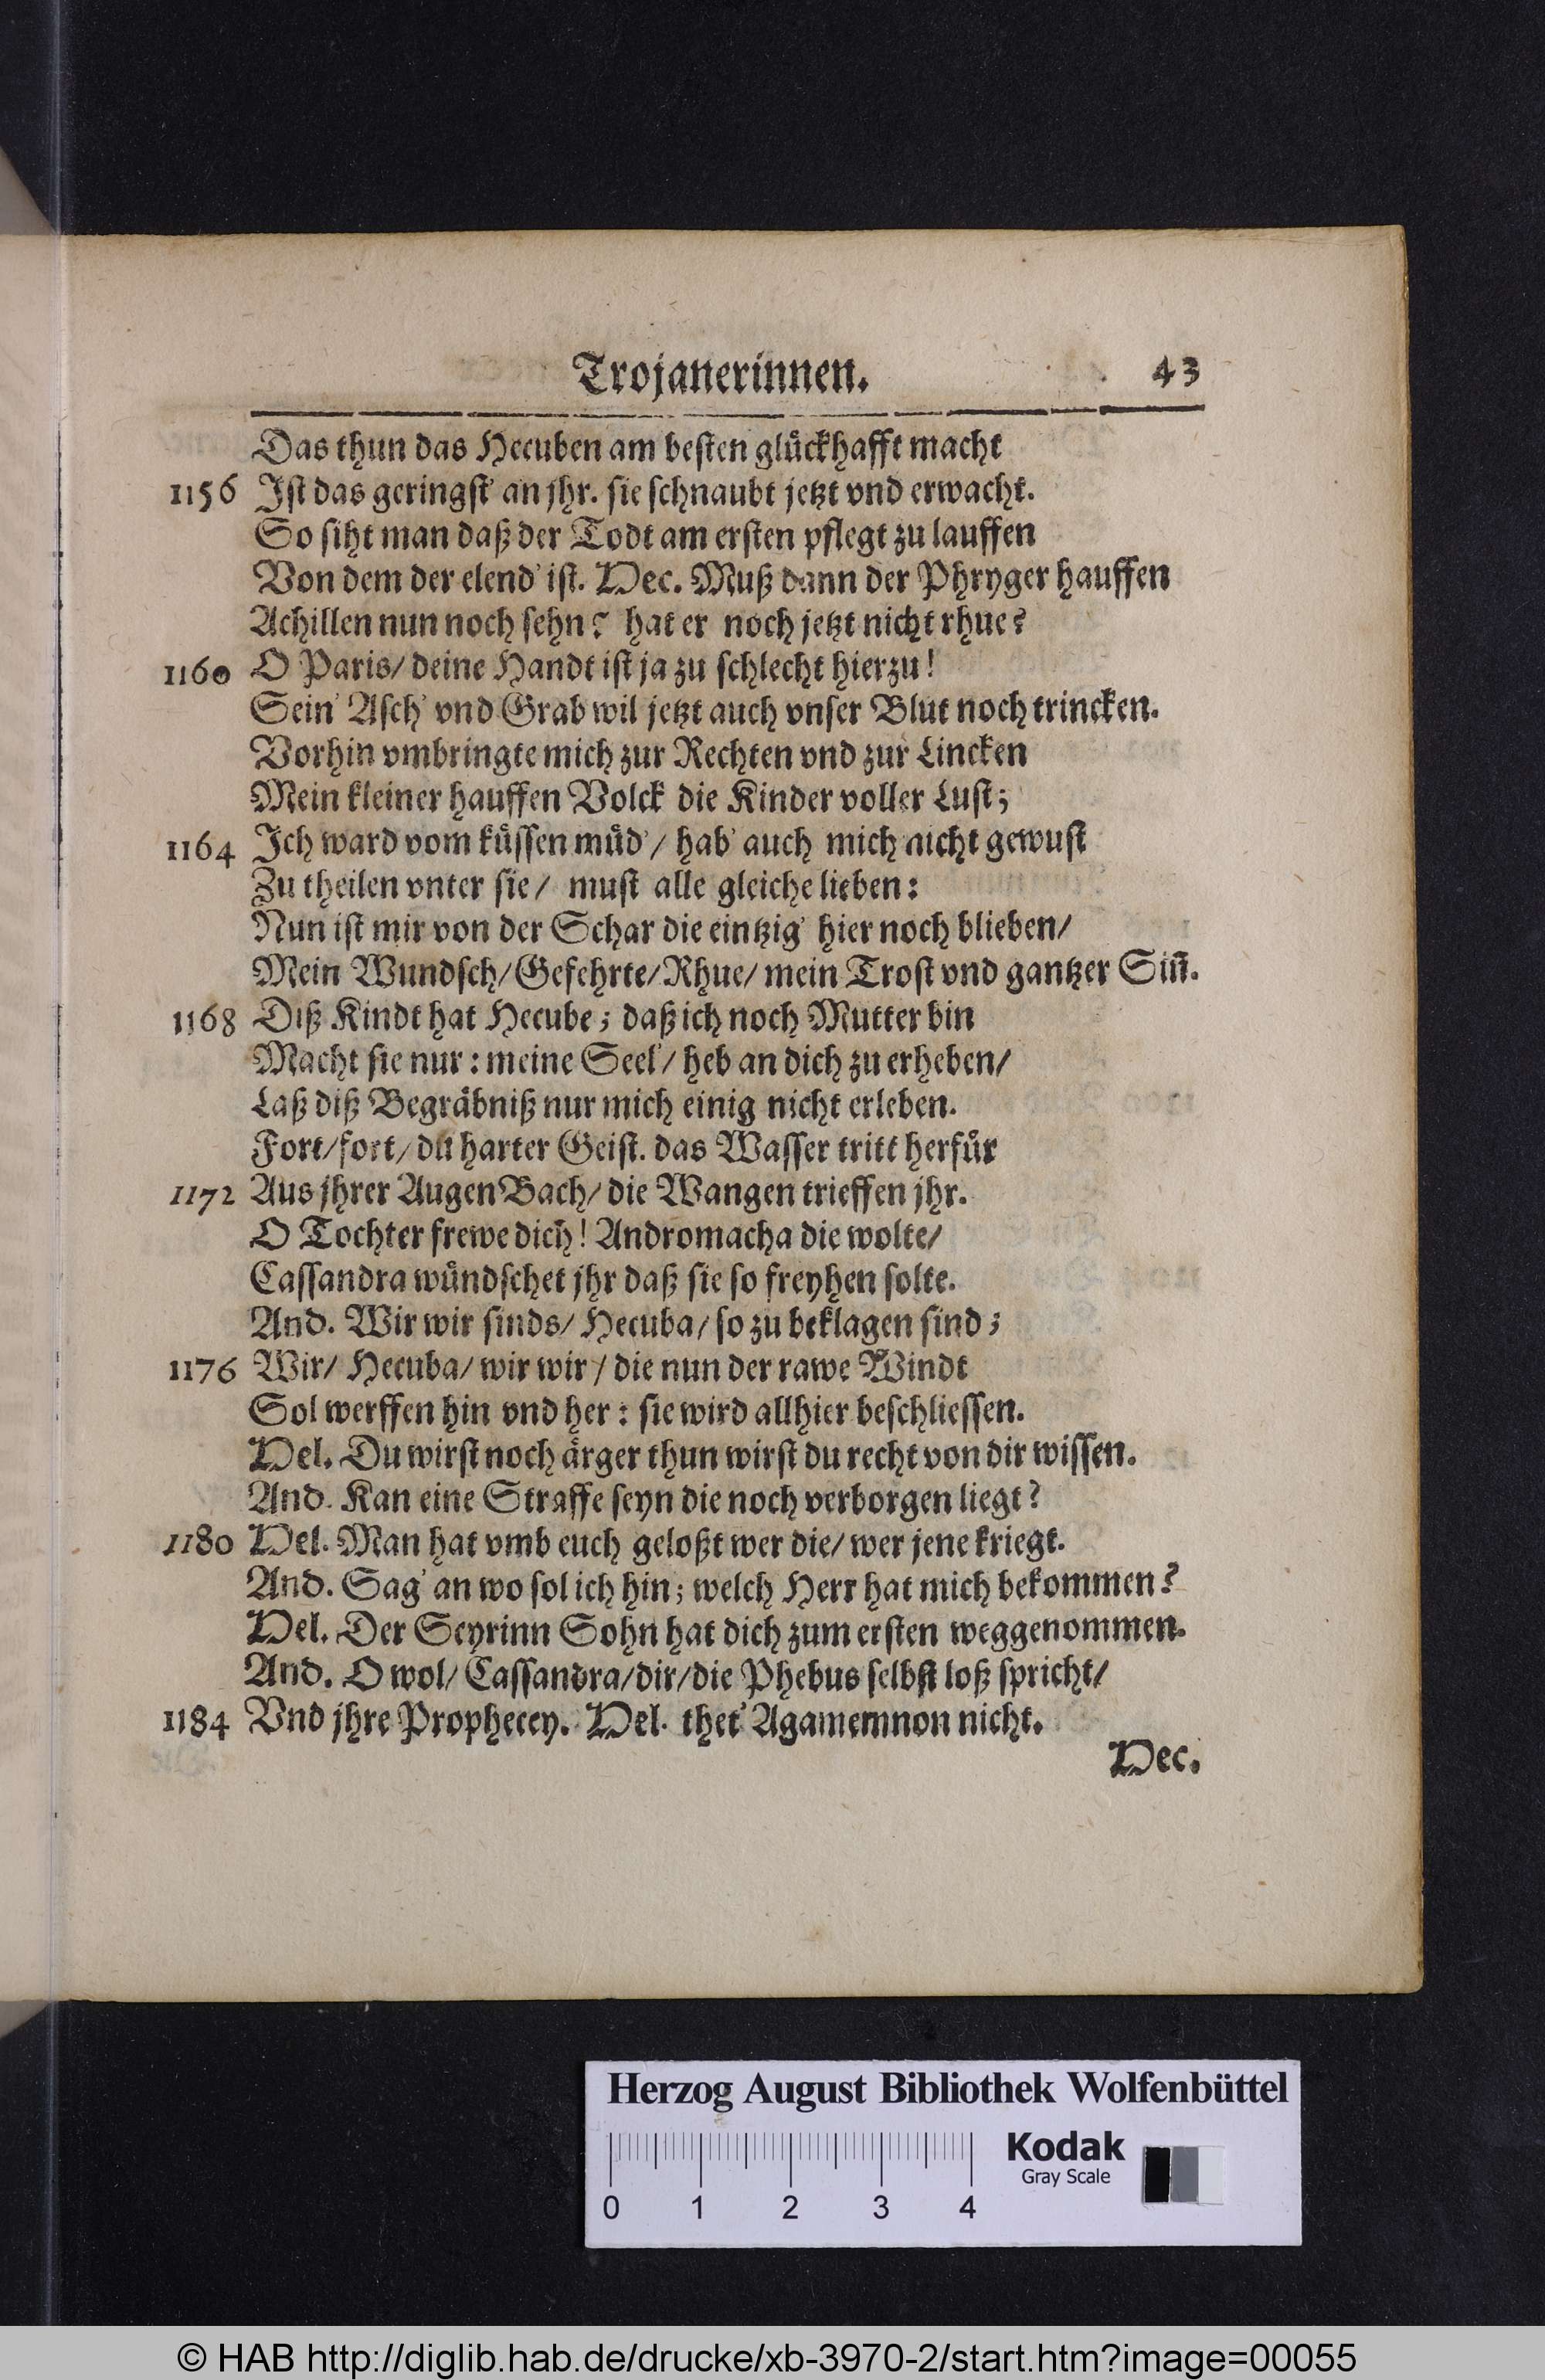 Trojanerinnen. 43
Das thun das Hecuben am besten glückhafft macht
1156 Ist das geringst' an jhr. sie schnaubt jetzt vnd erwacht.
So siht man daß der Todt am ersten pflegt zu lauffen
Von dem der elend' ist. Hec. Muß dann der Phryger hauffen
Achillen nun noch sehn? hat er noch jetzt nicht rhue?
1160 O Paris/ deine Handt ist ja zu schlecht hierzu!
Sein' Asch' vnd Grab wil jetzt auch vnser Blut noch trincken.
Vorhin vmbringte mich zur Rechten vnd zur Lincken
Mein kleiner hauffen Volck die Kinder voller Lust;
1164 Ich ward vom küssen müd'/ hab' auch mich nicht gewust
Zu theilen vnter sie/ must alle gleiche lieben:
Nun ist mir von der Schar die eintzig' hier noch blieben/
Mein Wundsch/ Gefehrte/ Rhue/ mein Trost vnd gantzer Siñ.
1168 Diß Kindt hat Hecube; daß ich noch Mutter bin
Macht sie nur: meine Seel'/ heb an dich zu erheben/
Laß diß Begräbniß nur mich einig nicht erleben.
Fort/ fort/ du harter Geist. das Wasser tritt herfür
1172 Aus jhrer Augen Bach/ die Wangen trieffen jhr.
O Tochter frewe dich! Andromacha die wolte/
Cassandra wündschet jhr daß sie so freyhen solte.
And. Wir wir sinds/ Hecuba/ so zu beklagen sind;
1176 Wir/ Hecuba/ wir wir/ die nun der rawe Windt
Sol werffen hin vnd her: sie wird allhier beschliessen.
Hel. Du wirst noch ärger thun wirst du recht von dir wissen.
And. Kan eine Straffe seyn die noch verborgen liegt?
1180 Hel. Man hat vmb euch geloßt wer die/ wer jene kriegt.
And. Sag' an wo sol ich hin; welch Herr hat mich bekommen?
Hel. Der Scyrinn Sohn hat dich zum ersten weggenommen.
And. O wol/ Cassandra/ dir/ die Phebus selbst loß spricht/
1184 Vnd jhre Prophecey. Hel. thet' Agamemnon nicht.
Hec.
Herzog August Bibliothek Wolfenbüttel
Kodak
Gray Scale
0 1 2 3 4
© HAB http://diglib.hab.de/drucke/xb-3970-2/start.htm?image=00055